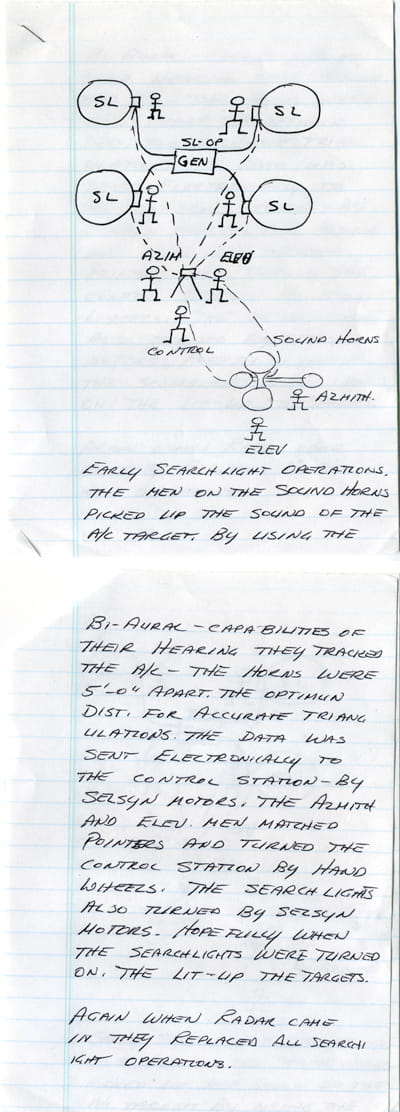 SL
SL
SL-OP
GEN
SL
SL
AZIM
ELEV
CONTROL
SOUND HORNS
AZMITH.
ELEV
EARLY SEARCHLIGHT OPERATIONS.
THE MEN ON THE SOUND HORNS
PICKED UP THE SOUND OF THE
A/C TARGET. BY USING THE
BI-AURAL-CAPABILITIES OF
THEIR HEARING THEY TRACKED
THE A/C - THE HORNS WERE
5'-0" APART. THE OPTIMUN
DIST. FOR ACCURATE TRIANG
ULATIONS. THE DATA WAS
SENT ELECTRONICALLY TO
THE CONTROL STATION - BY
SELSYN MOTORS. THE AZMITH
AND ELEV. MEN MATCHED
POINTERS AND TURNED THE
CONTROL STATION BY HAND
WHEELS. THE SEARCH LIGHTS
ALSO TURNED BY SELSYN
MOTORS. HOPEFULLY WHEN
THE SEARCHLIGHTS WERE TURNED
ON. THE LIT-UP THE TARGETS.
AGAIN WHEN RADAR CAME
IN THEY REPLACED ALL SEARCHL
IGHT OPERATIONS.